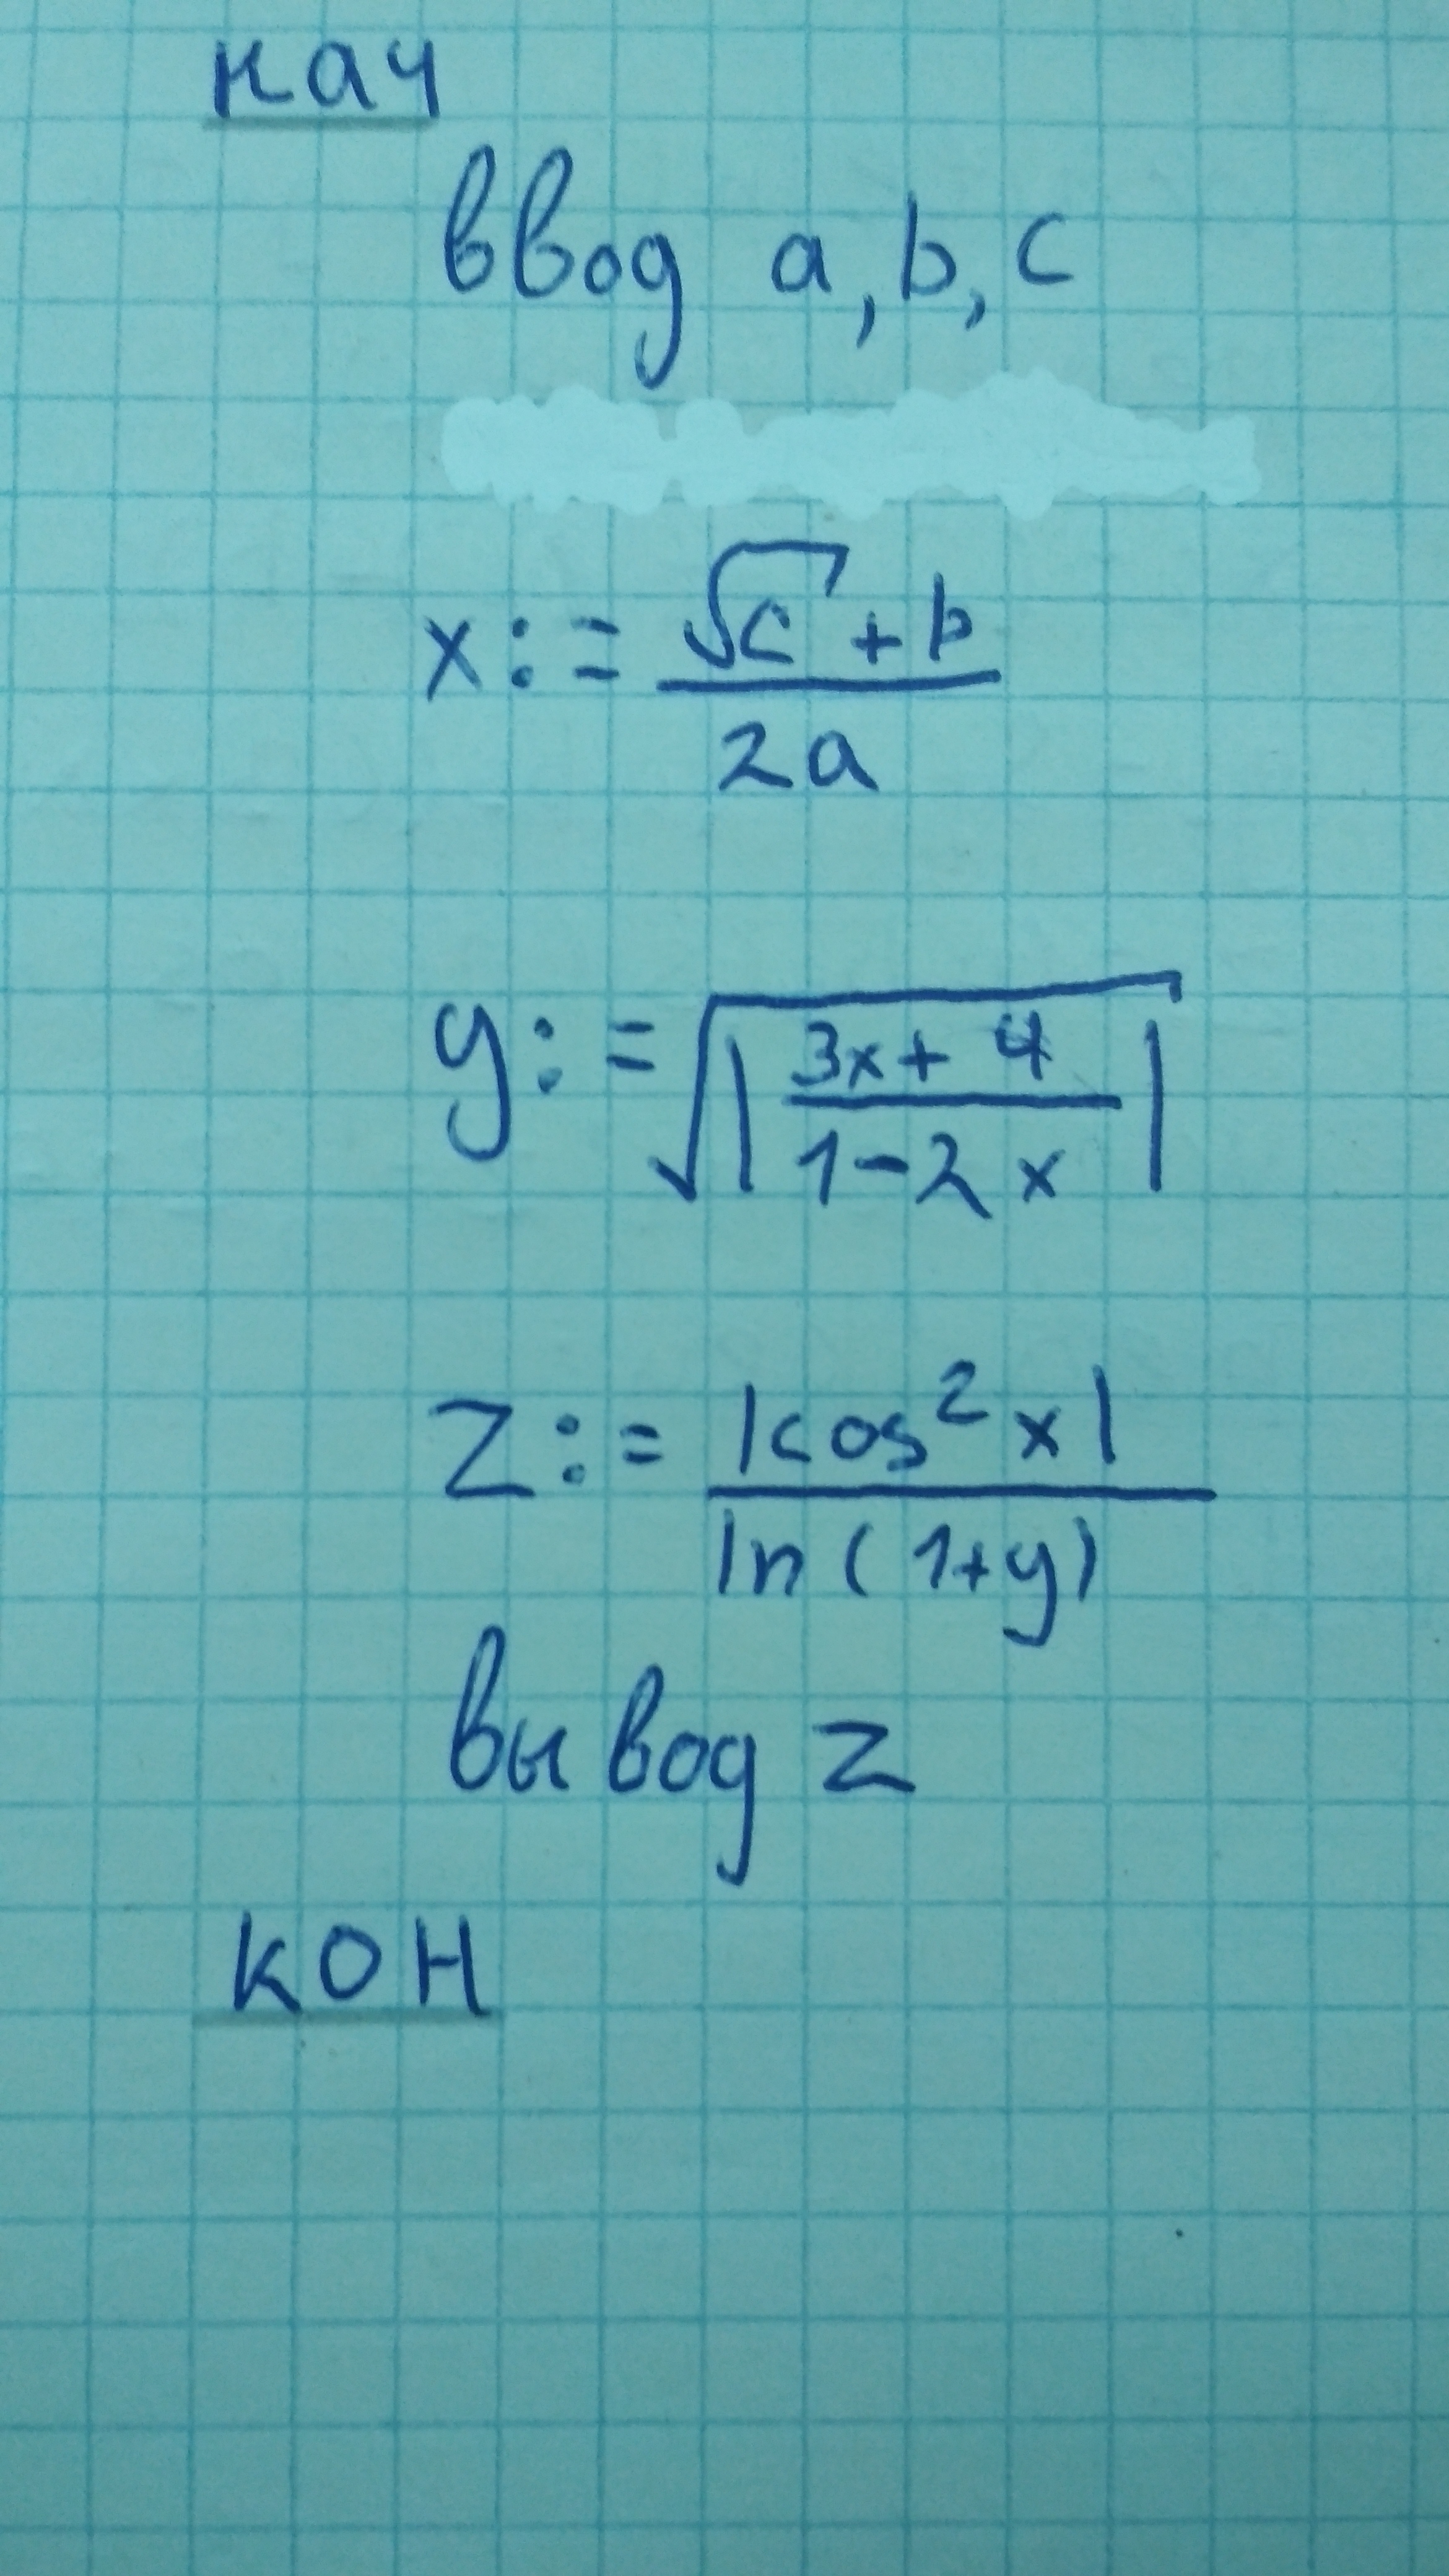 нач
ввод a, b, c
x := (√c + b) / 2a
y := √|(3x + 4) / (1 - 2x)|
z := |cos² x| / ln(1+y)
вывод z
кон